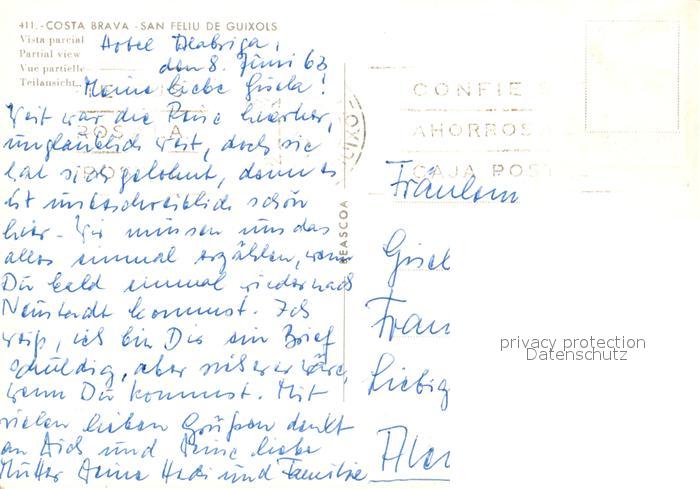 411. - COSTA BRAVA - SAN FELIU DE GUIXOLS
Vista parcial
Partial view
Vue partielle
Teilansicht
Hotel
den 8. Juni 63
Meine liebe Gisela!
Weit war die Reise hierher,
unglaublich weit, doch sie
hat sich gelohnt, denn es
ist unbeschreiblich schön
hier. Wir müssen uns das
alles einmal erzählen, wenn
Du bald einmal wieder nach
Neustadt kommst. Ich
weiß, ich bin Dir ein Brief
schuldig, aber wäre,
wenn Du kommst. Mit
vielen lieben Grüßen denkt
an Dich und Deine liebe
Mutter Deine und Familie
CONFIE S
AHORROS
CAJA POST
ROS A
GUIXO
BEASCOA
Fräulein
Gisel
Fran
Liebig
privacy protection
Datenschutz